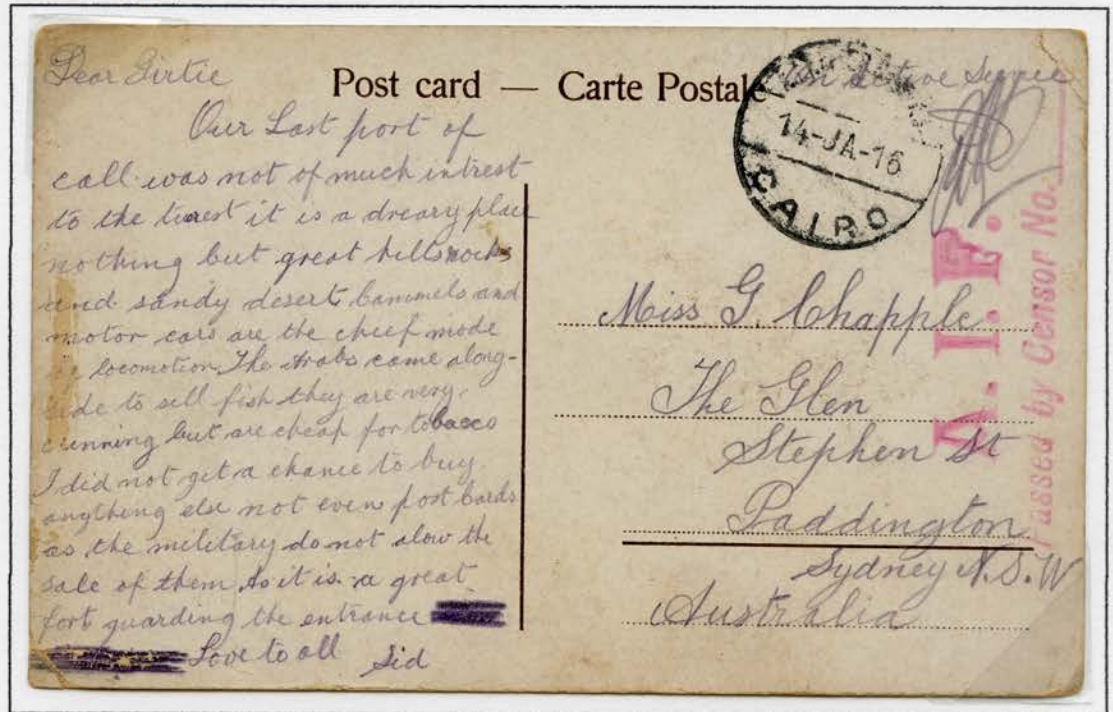 Dear Girtie
Our Last port of
call was not of much intrest
to the turest it is a dreary place
nothing but great hills rocks
and sandy desert Cammels and
motor cars are the cheef mode
locomotion The Arabs came along-
side to sell fish they are very
cunning but are cheap for tobacco
I did not get a chance to buy
anything else not even post Cards
as the military do not alow the
sale of them As it is a great
fort guarding the entrance
Love to all Sid
Post card — Carte Postale
On active Service
14-JA-16
CAIRO
A.I.F.
Passed by Censor No.
Miss G. Chapple
The Glen
Stephen St
Paddington
Sydney N.S.W
Australia